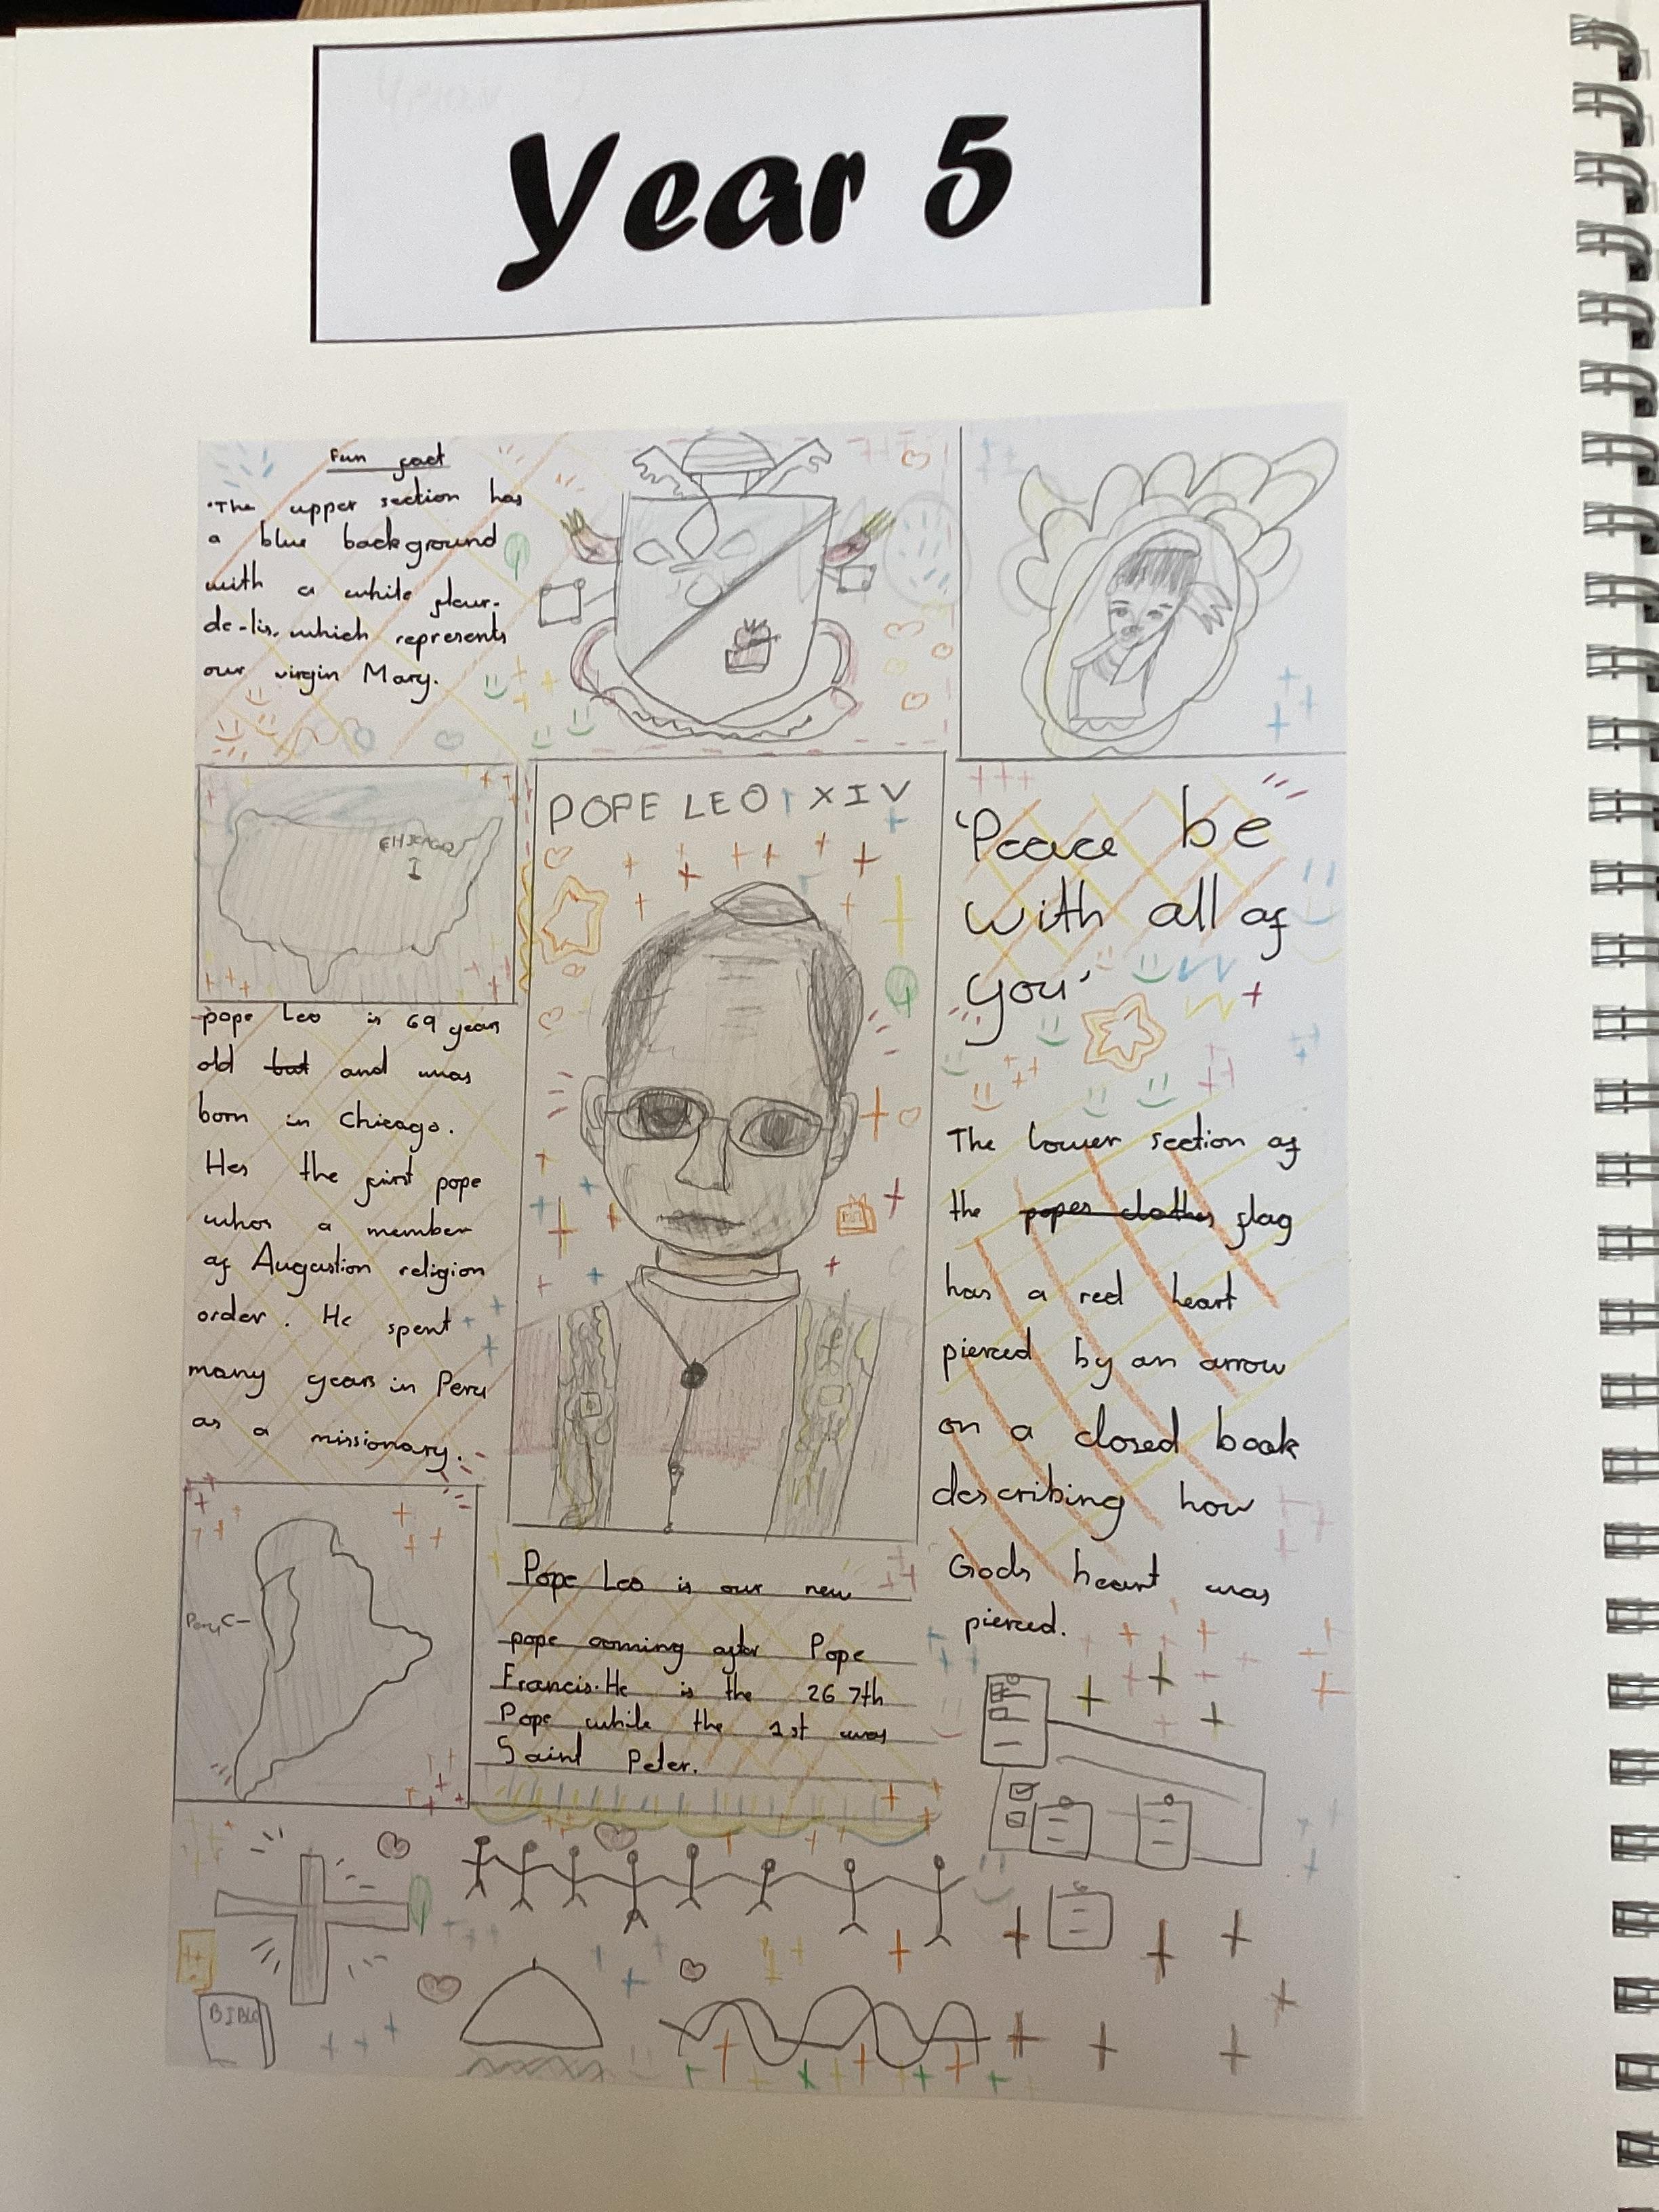 Year 5
Fun fact
•The upper section has
a blue background
with a white fleur-
de-lis. which represents
our virgin Mary.
CHICAGO
pope Leo is 69 years
old but and was
born in Chicago.
Hes the first pope
whos a member
of Augastion religion
order. He spent
many years in Peru
as a missionary.
Peru
POPE LEO XIV
Pope Leo is our new
pope coming after Pope
Francis. He is the 267th
Pope while the 1st was
Saint Peter.
'Peace be
with all of
you'
The lower section of
the popes clothes flag
has a red heart
pierced by an arrow
on a closed book
describing how
Gods heart was
pierced.
BIBLE